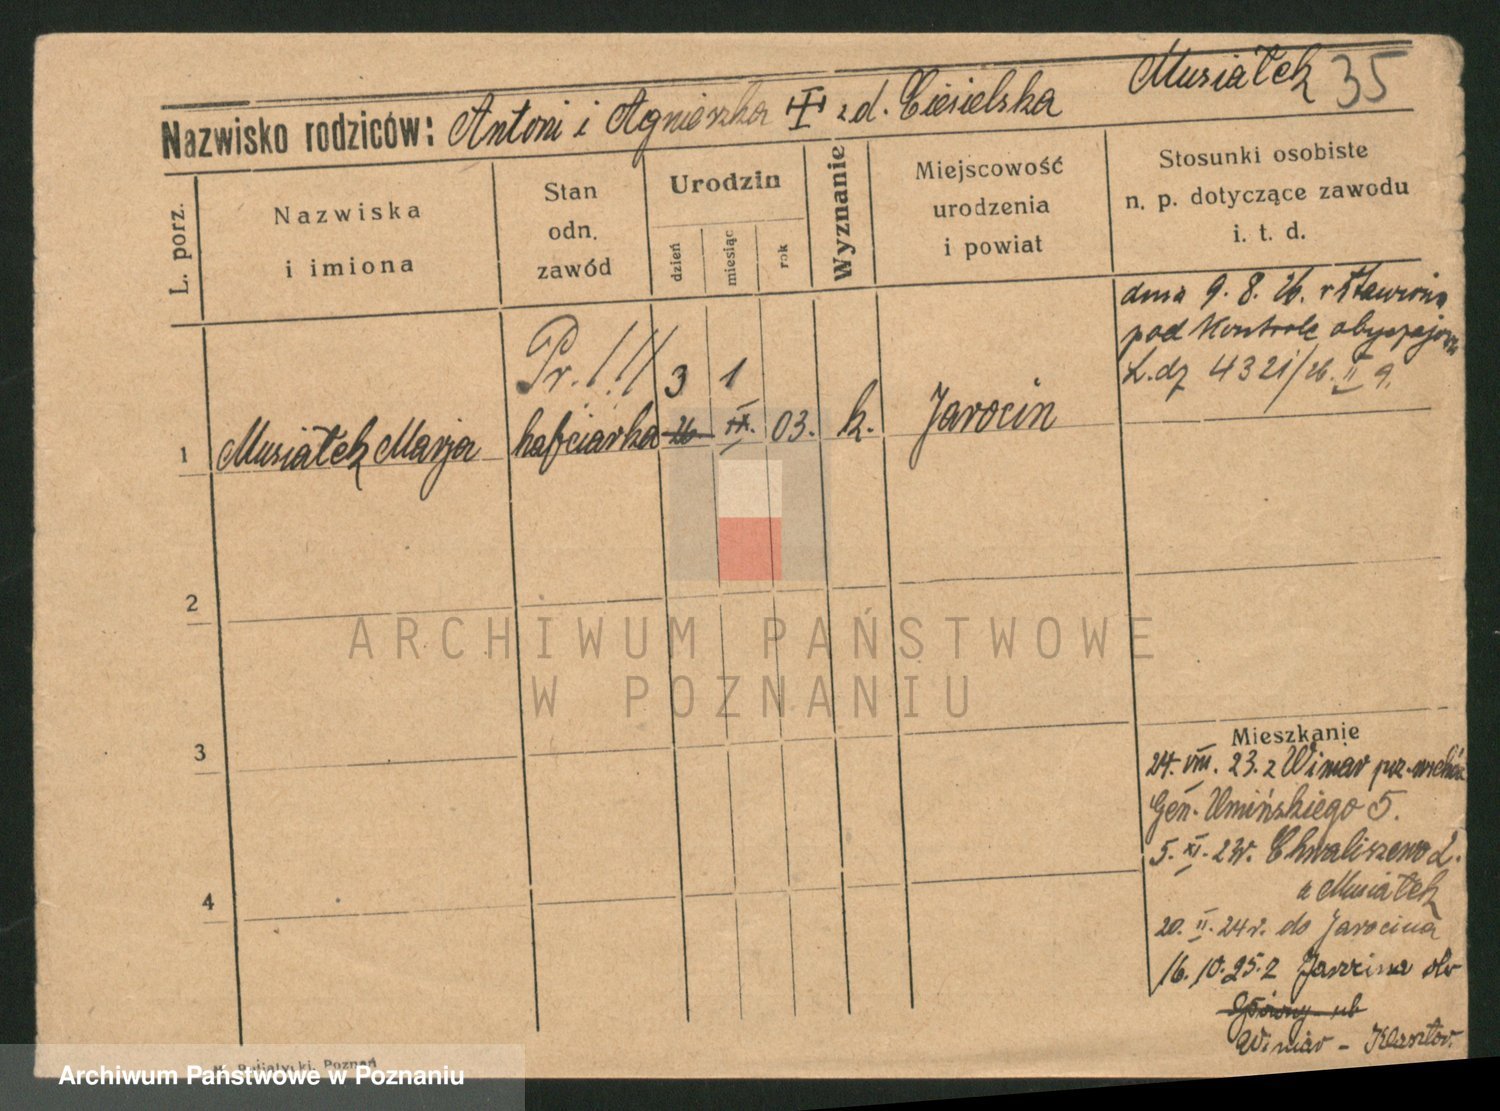 Musiałek 35
Nazwisko rodziców: Antoni i Agnieszka z d. Ciesielska
L. porz.
Nazwiska
i imiona
Stan
odn.
zawód
Urodzin
dzień
miesiąc
rok
Wyznanie
Miejscowość
urodzenia
i powiat
Stosunki osobiste
n. p. dotyczące zawodu
i. t. d.
dnia 9. 8. 26. stawiona
pod Kontrolę obyczajow
L.dz 4321/26. II 9.
Pr. !!! 3 1
1 Musiałek Marja hafciarka 26 IX. 03. k. Jarocin
2
3
4
Mieszkanie
24. VIII. 23. z Winiar
Gen. Umińskiego 5.
5. XI. 23r. Chwaliszewo 2.
u Musiałek
20. II. 24r. do Jarocina
16. 10. 25. z Jarocina do
Winiar -
ARCHIWUM PAŃSTWOWE
W POZNANIU
Poznań
Archiwum Państwowe w Poznaniu